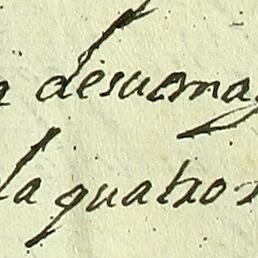 desumag
la quatro